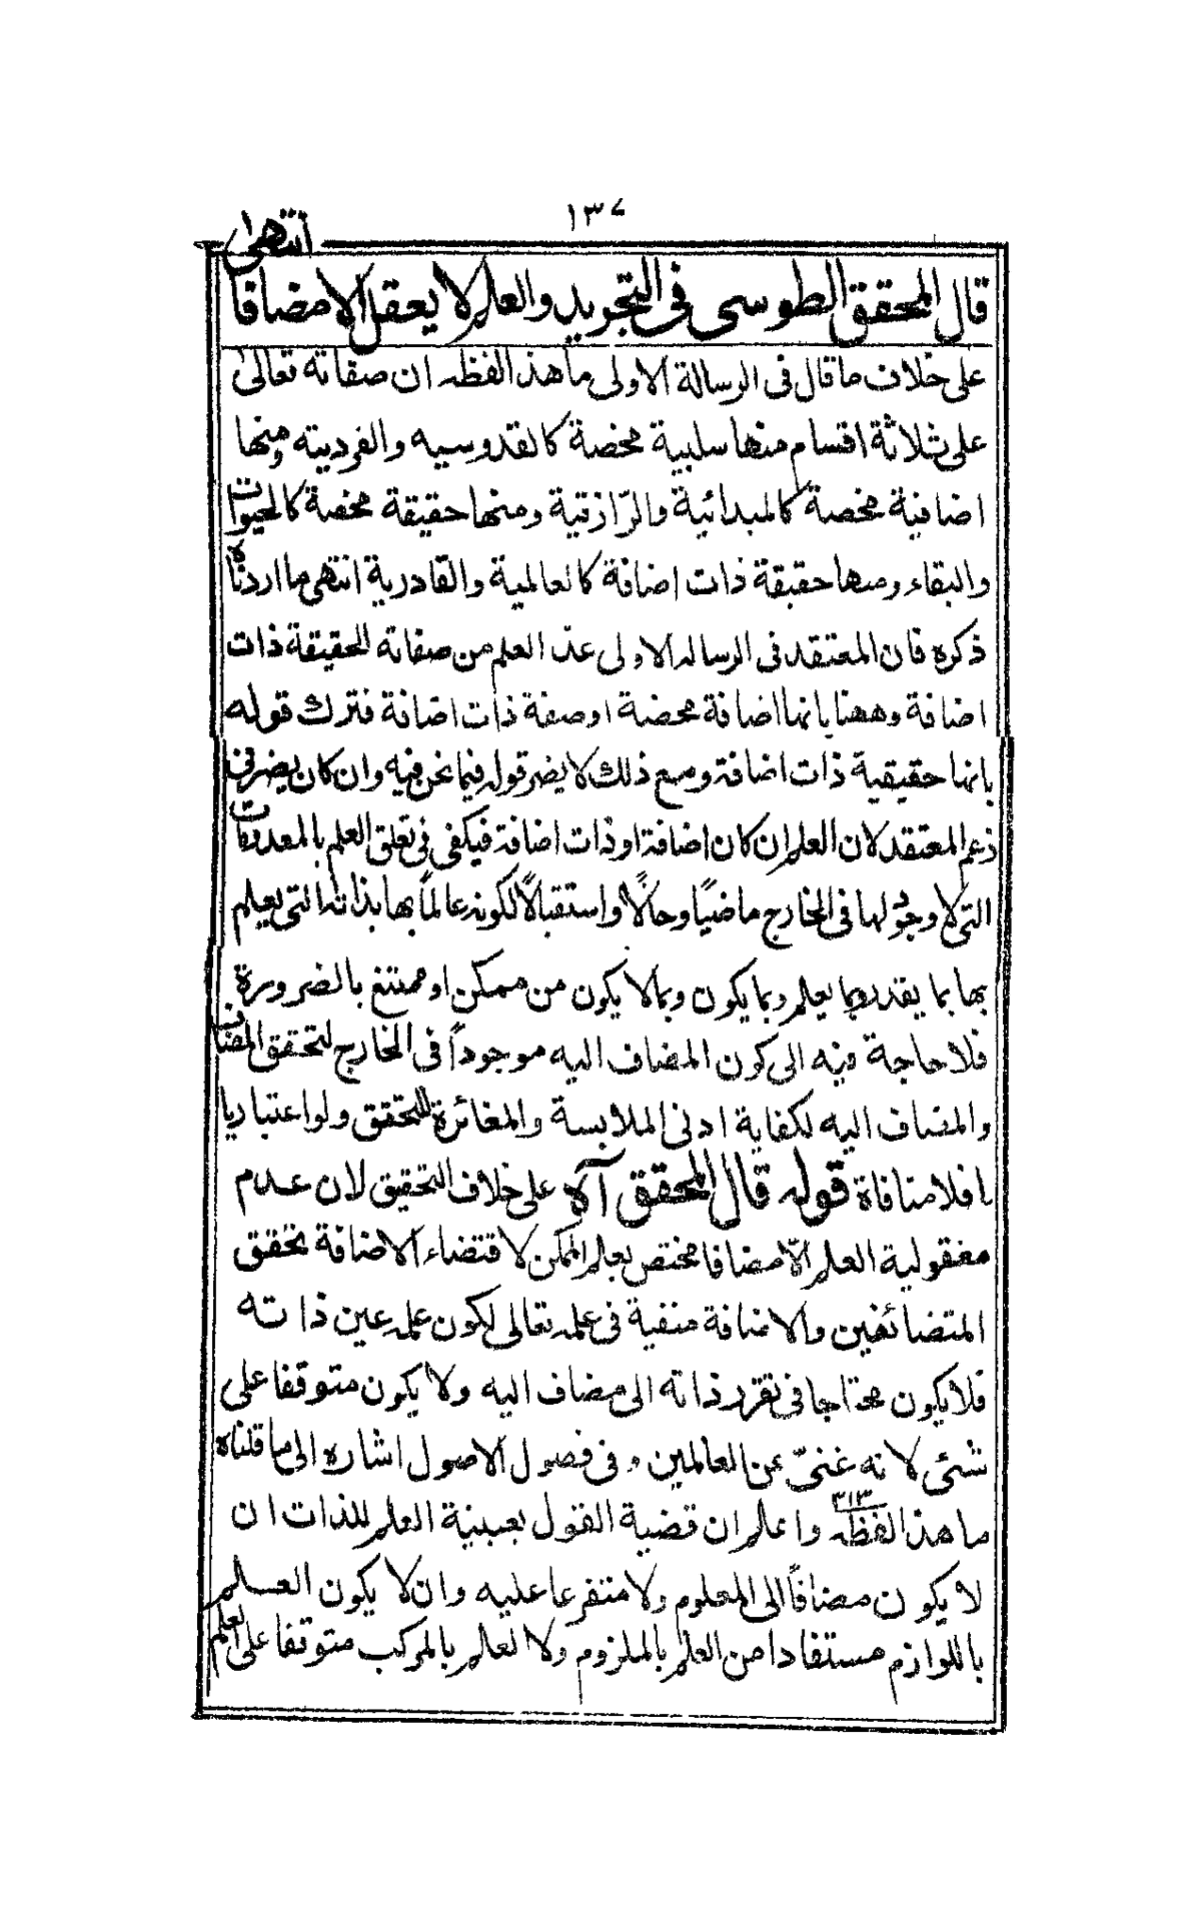 ١٣٧
قال المحقق الطوسى فى التجريد والعلم لا يعقل الا مضافا انتهى
على خلاف ما قال فى الرسالة الاولى ما هذا لفظه ان صفاته تعالى
على ثلاثة اقسام منها سلبية محضة كالقدوسيه والفرديته ومنها
اضافية محضة كالمبدائية والرّازقية ومنها حقيقة محضة كالحيوات
والبقاء ومنها حقيقة ذات اضافة كالعالمية والقادرية انتهى ما اردناه
ذكره فان المعتقد فى الرساله الاولى عدّ العلم من صفاته الحقيقة ذات
اضافة وههنا بانها اضافة محضة او صفة ذات اضافة فترك قوله
بانها حقيقية ذات اضافة ومع ذلك لا يضر قوله فيما نحن فيه وان كان يضر فى
زعم المعتقد لان العلم ان كان اضافة او ذات اضافة فيكفى فى تعلق العلم بالمعدومات
التى لا وجود لها فى الخارج ماضيًا وحالًا واستقبالًا لكونه عالمًا بها بذاته التى يعلم
بها بما يقدر وبما يعلم وبما يكون وبما لا يكون من ممكن او ممتنع بالضرورة
فلا حاجة فيه الى كون المضاف اليه موجوداً فى الخارج لتحقق المضاف
والمضاف اليه لكفاية ادنى الملابسة والمغائرة للتحقق ولو اعتباريا
فلا منافاة قوله قال المحقق آه على خلاف التحقيق لان عدم
معقولية العلم الّا مضافا مختص بعلم الممكن لاقتضاء الاضافة تحقق
المتضائفين والاضافة منفية فى علمه تعالى لكون علمه عين ذاته
فلا يكون محتاجا فى تقرر ذاته الى مضاف اليه ولا يكون متوقفا على
شئى لانه غنىّ عن العالمين وفى فصول الاصول اشاره الى ما قلناه
ما هذا لفظه ٣١٣ واعلم ان قضية القول بعينية العلم للذات ان
لا يكون مضافاً الى المعلوم ولا متفرعا عليه وان لا يكون العلم
باللوازم مستفادا من العلم بالملزوم ولا لعلم بالمركب متوقفا على العلم